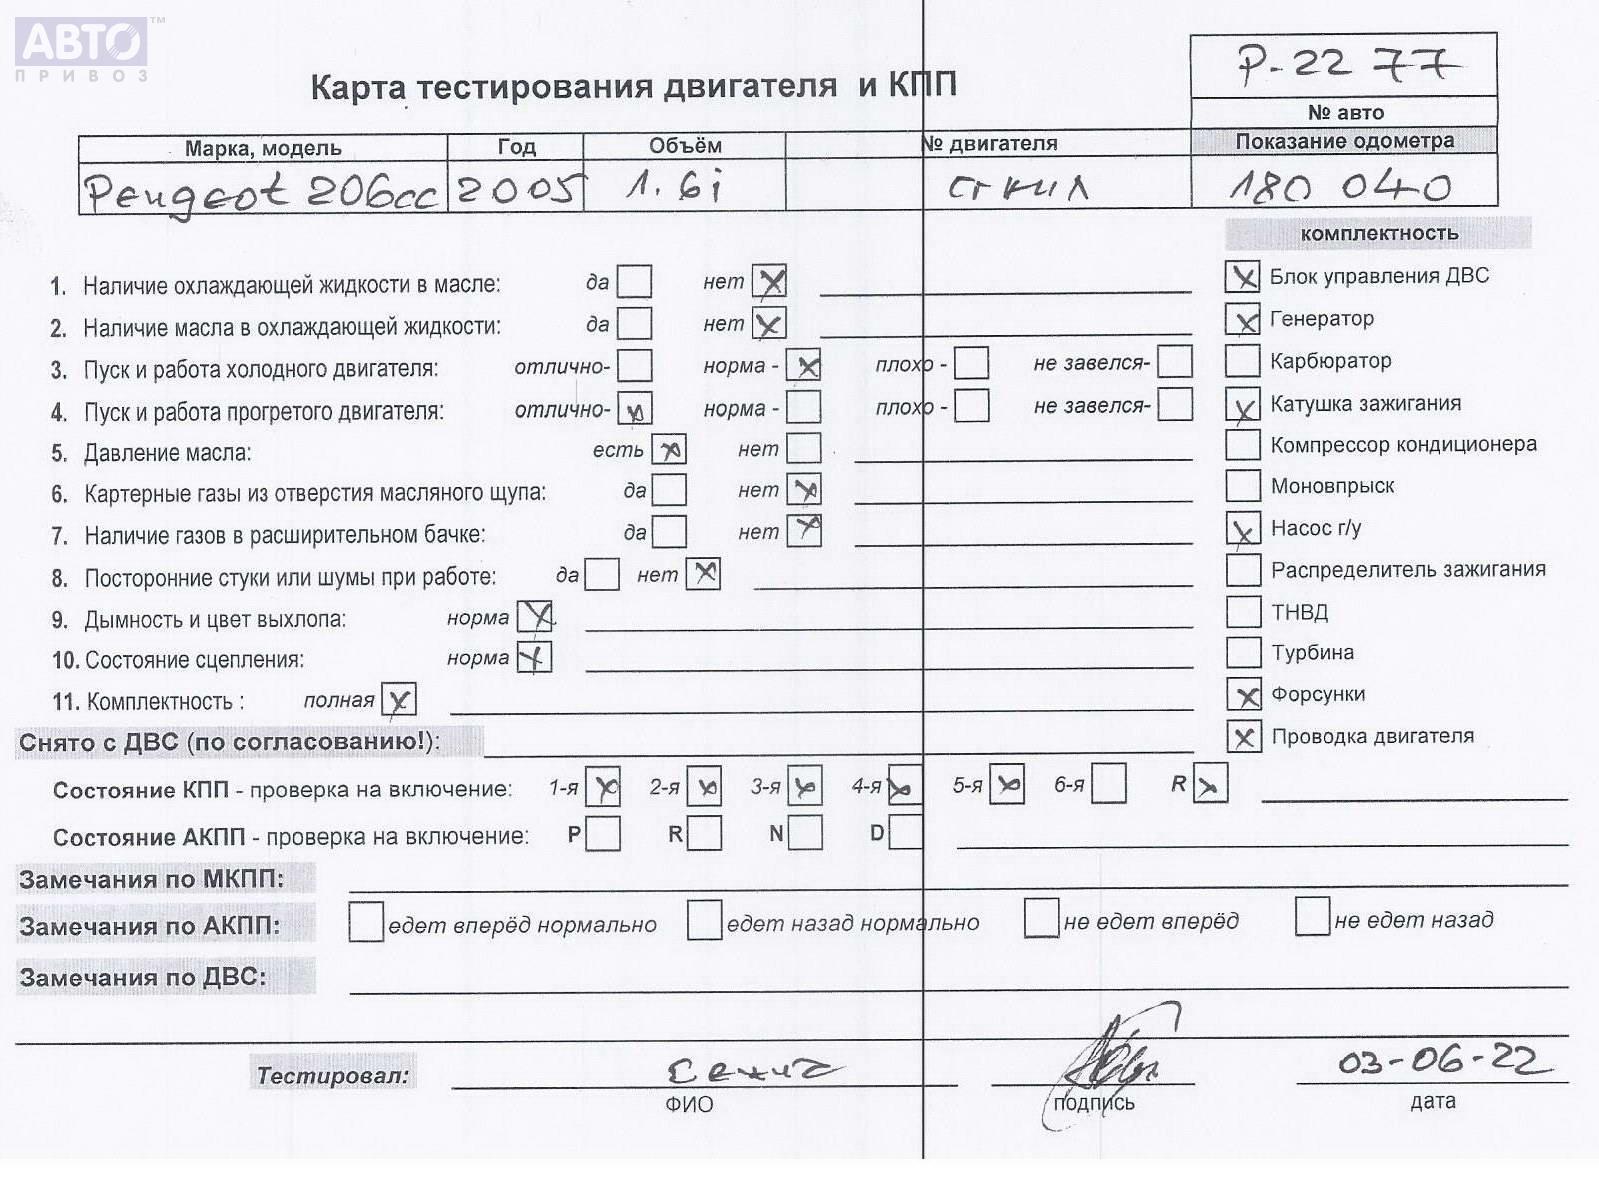 АВТО™
ПРИВОЗ
P-22 77
Карта тестирования двигателя и КПП
№ авто
Марка, модель Год Объём № двигателя Показание одометра
Peugeot 206cc 2005 1.6i 180 040
комплектность
1. Наличие охлаждающей жидкости в масле: да нет Блок управления ДВС
2. Наличие масла в охлаждающей жидкости: да нет Генератор
3. Пуск и работа холодного двигателя: отлично- норма - плохо - не завелся- Карбюратор
4. Пуск и работа прогретого двигателя: отлично- норма - плохо - не завелся- Катушка зажигания
5. Давление масла: есть нет Компрессор кондиционера
6. Картерные газы из отверстия масляного щупа: да нет Моновпрыск
7. Наличие газов в расширительном бачке: да нет Насос г/у
8. Посторонние стуки или шумы при работе: да нет Распределитель зажигания
9. Дымность и цвет выхлопа: норма ТНВД
10. Состояние сцепления: норма Турбина
11. Комплектность : полная Форсунки
Снято с ДВС (по согласованию!): Проводка двигателя
Состояние КПП - проверка на включение: 1-я 2-я 3-я 4-я 5-я 6-я R
Состояние АКПП - проверка на включение: P R N D
Замечания по МКПП:
Замечания по АКПП: едет вперёд нормально едет назад нормально не едет вперёд не едет назад
Замечания по ДВС:
Тестировал: 03-06-22
ФИО подпись дата